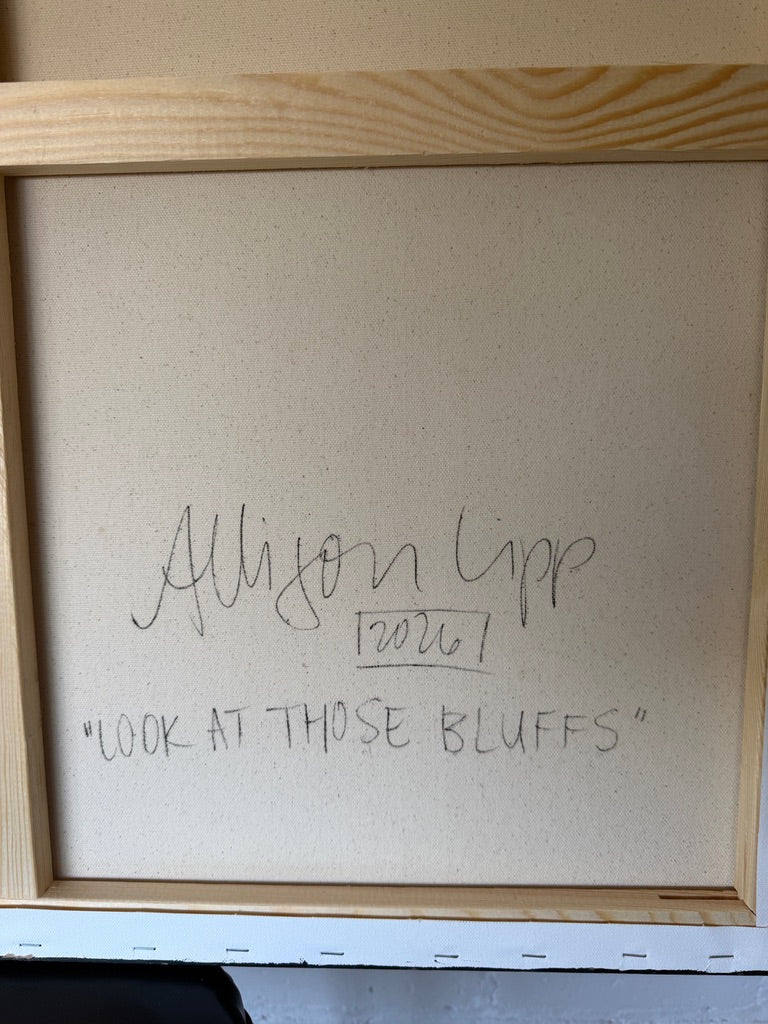 Allison Lipp
2026
"LOOK AT THOSE BLUFFS"